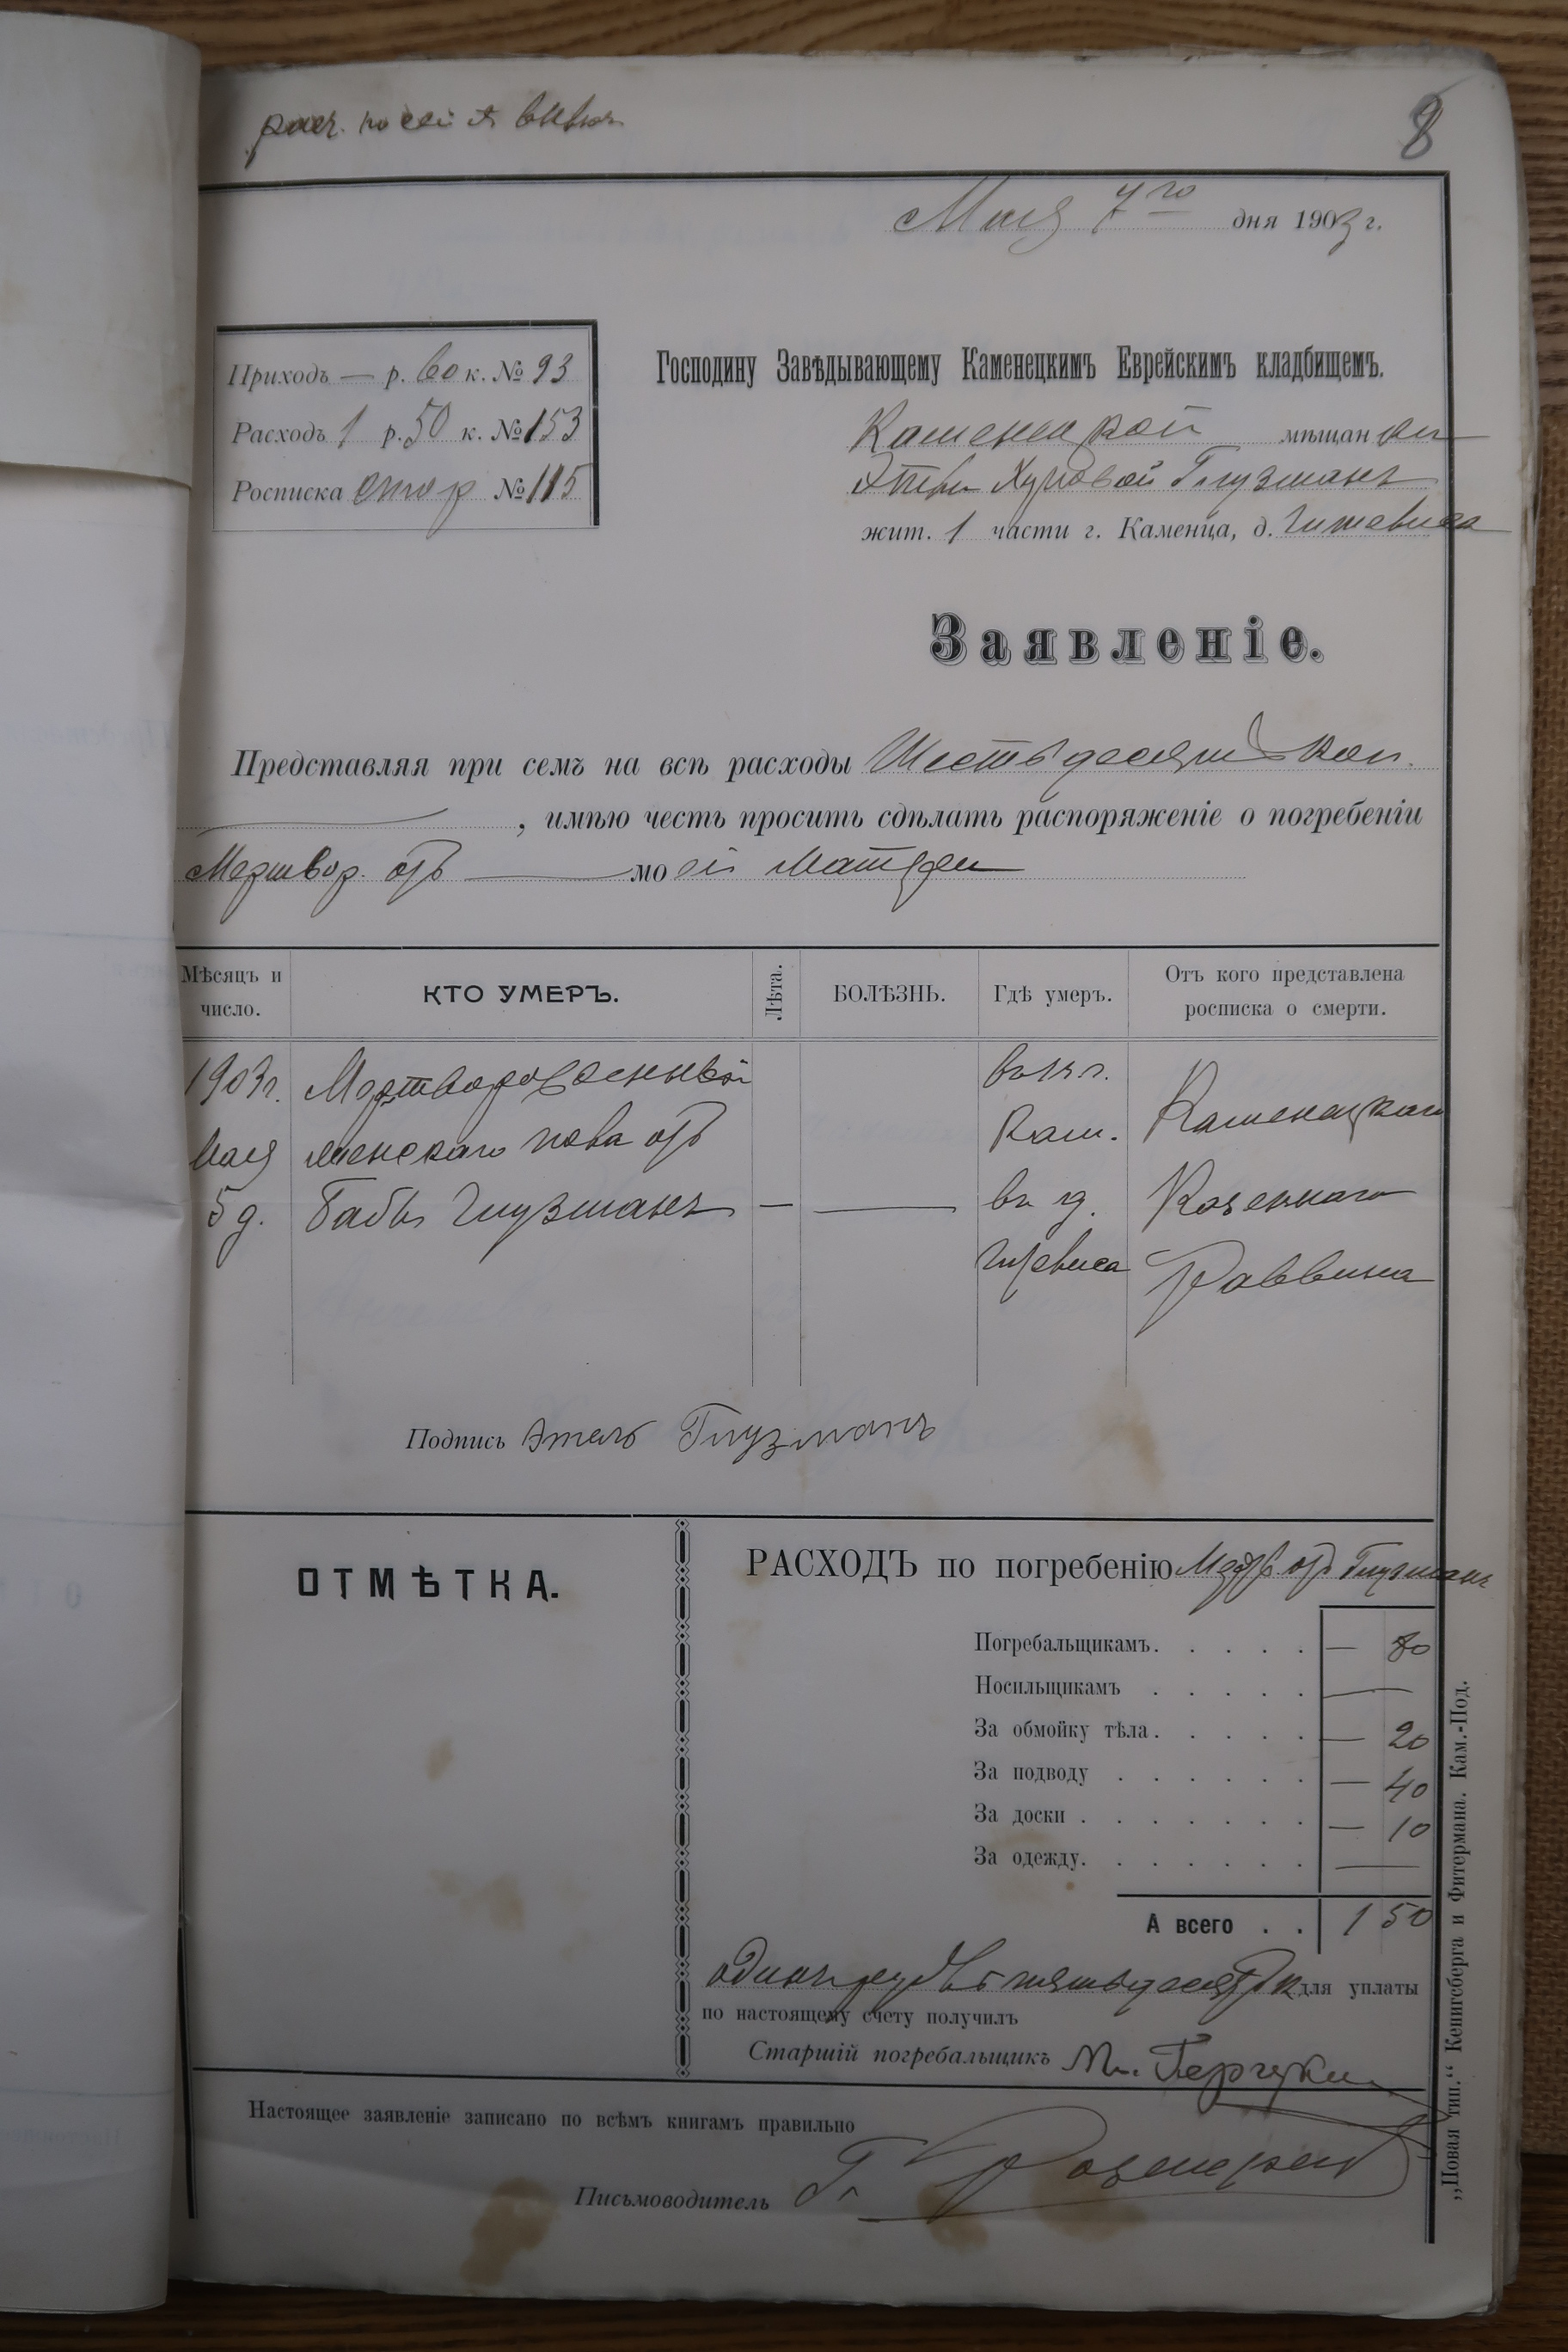 8
Мая 7го дня 1903 г.
Приходъ — р. 60 к. № 93
Расходъ 1 р. 50 к. № 153
Росписка № 115
Господину Завѣдывающему Каменецкимъ Еврейскимъ кладбищемъ.
Каменецкой мѣщанки
Глузманъ
жит. 1 части г. Каменца, д. Гитевиса
Заявленіе.
Представляя при семъ на всѣ расходы Шестьдесятъ коп.
, имѣю честь просить сдѣлать распоряженіе о погребеніи
Мертвор. отъ — моей матери
Мѣсяцъ и число.
КТО УМЕРЪ.
Лѣта.
БОЛѢЗНЬ.
Гдѣ умеръ.
Отъ кого представлена росписка о смерти.
1903г. Мая 5 д.
Мертворожденный
женскаго пола отъ
Бабы Глузманъ
—
—
Кам.
въ д.
Каменецкаго
Казеннаго
Раввина
Подпись Этель Глузманъ
ОТМѢТКА.
РАСХОДЪ по погребенію Мертв. отъ Глузманъ
Погребальщикамъ. . . . . — 80
Носильщикамъ . . . . . —
За обмойку тѣла. . . . . — 20
За подводу . . . . . . — 40
За доски . . . . . . . — 10
За одежду. . . . . . . —
А всего . . 1 50
одинъ рубль пятьдесятъ к для уплаты
по настоящему счету получилъ
Старшій погребальщикъ
Настоящее заявленіе записано по всѣмъ книгамъ правильно
Письмоводитель
„Новая тип.“ Кенигсберга и Фитермана. Кам.-Под.